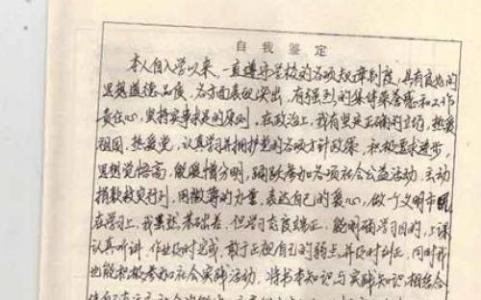 自我鉴定
本人自入学以来，一直遵守学校的各项规章制度，具有良好的
思想道德品质，各方面表现突出，有强烈的集体荣誉感和工作
责任心，坚持实事求是的原则。在政治上，我有坚定正确的立场，热爱
祖国，热爱党，认真学习并拥护党的各项方针政策，积极要求进步，
思想觉悟高，能爱憎分明，踊跃参加各项社会公益活动，主动
捐款救灾行列，用微薄的力量，表达自己的爱心，做个文明市民
在学习上，我虽然基础差，但学习态度端正，能明确学习目的，上课
认真听讲，作业及时完成，敢于正视自己的弱点并及时纠正，同时我
也能积极参加社会实践活动，将书本知识与实践知识相结合，